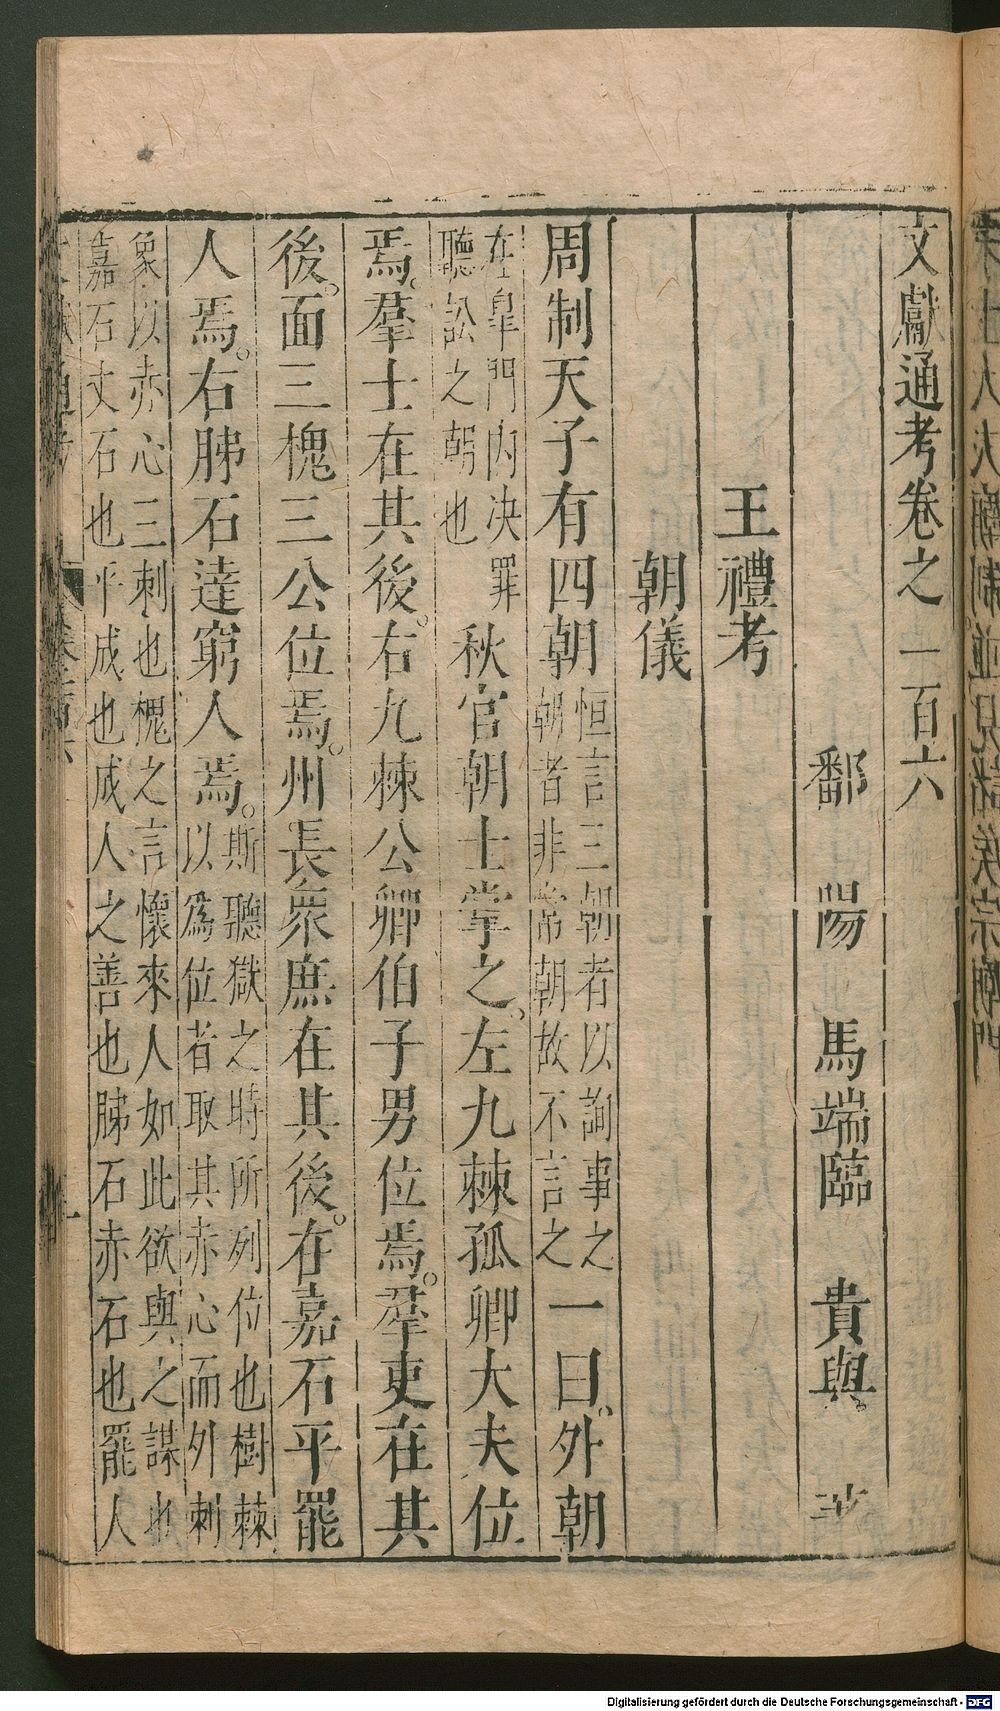 文獻通考卷之一百六
鄱陽馬端臨貴與
王禮考
朝儀
周制天子有四朝
恒言三朝者以詢事之
朝者非常朝故不言之
一曰。外朝
在皐門內決罪
聽訟之朝也
秋官朝士掌之。左九棘孤卿大夫位
焉。羣士在其後。右九棘公卿伯子男位焉。羣吏在其
後。面三槐三公位焉。州長衆庶在其後。在嘉石平罷
人焉。右胏石達窮人焉。
斯聽獄之時所列位也樹棘
以爲位者取其赤心而外刺
象以赤心三刺也槐之言懷來人如此欲與之謀也
嘉石文石也平成也成人之善也胏石赤石也罷人
Digitalisierung gefördert durch die Deutsche Forschungsgemeinschaft - DFG